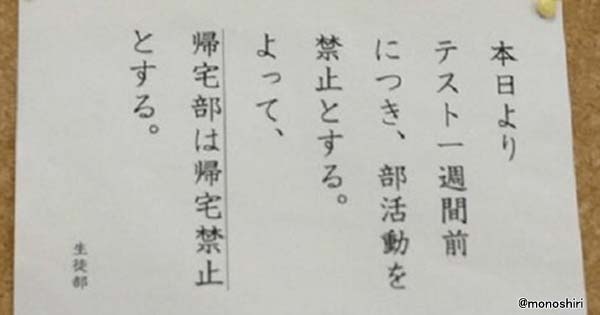 本日より
テスト一週間前
につき、部活動を
禁止とする。
よって、
帰宅部は帰宅禁止
とする。
生徒部
@monoshiri